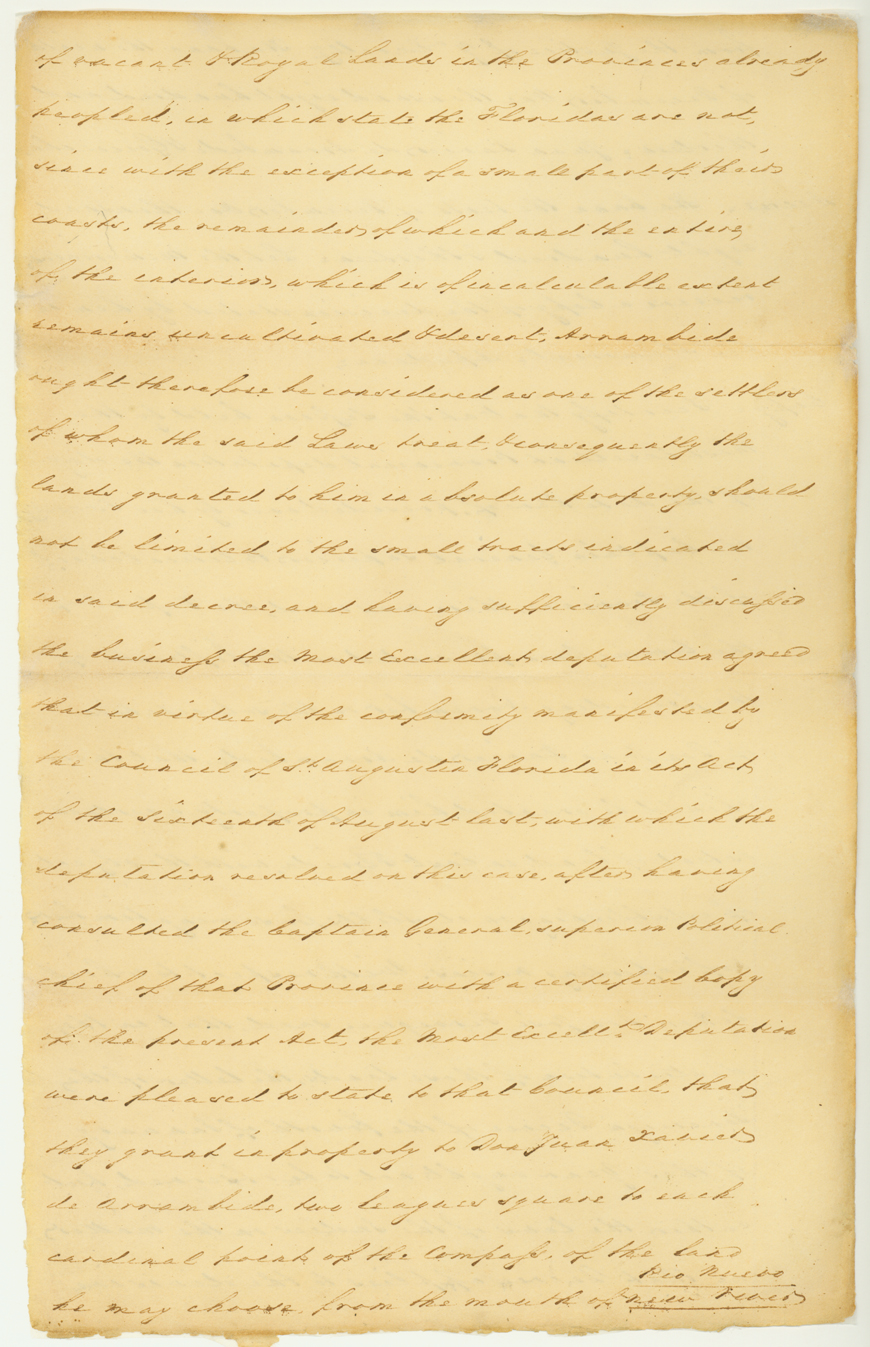 of vacant & Royal Lands in the Provinces already
peopled, in which state the Floridas are not,
since with the exception of a small part of their
coasts, the remainder of which and the entire
of the interior, which is of incalculable extent
remains uncultivated & desert, Arrambide
ought therefore be considered as one of the settlers
of whom the said Laws treat, & consequently the
lands granted to him in absolute property, should
not be limited to the small tracts indicated
in said decree, and having sufficiently discussed
the business the Most Excellent deputation agreed
that in virtue of the conformity manifested by
the Council of St. Augustin Florida in its Act
of the Sixteenth of August last, with which the
deputation resolved on this case, after having
consulted the Captain General, superior Political
chief of that Province with a certified Copy
of the present Act, the Most Excellt. Deputation
were pleased to state to that Council, that
they grant in property to Don Juan Xavier
de Arrambide, two leagues square to each
cardinal point of the Compass, of the land
Rio Nuevo
he may choose from the mouth of new River